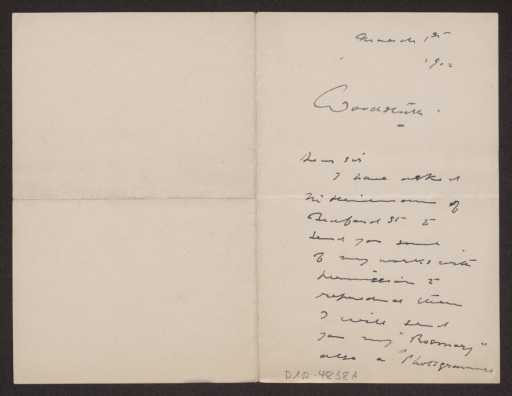 March 1st
190
Dear Sir
I have asked
of
Bedford St to
send you some
of my works with
permission to
reproduce them
I will send
you my "Rosemary"
also a "Photogravure